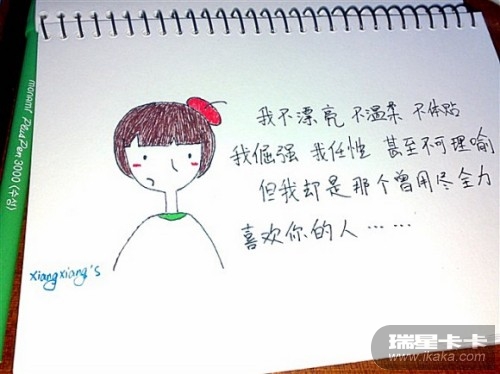 我不漂亮 不温柔 不体贴
我倔强 我任性 甚至不可理喻
但我却是那个曾用尽全力
喜欢你的人……
xiangxiang's
monami Plus Pen 3000 (수성)
瑞星卡卡
www.ikaka.com